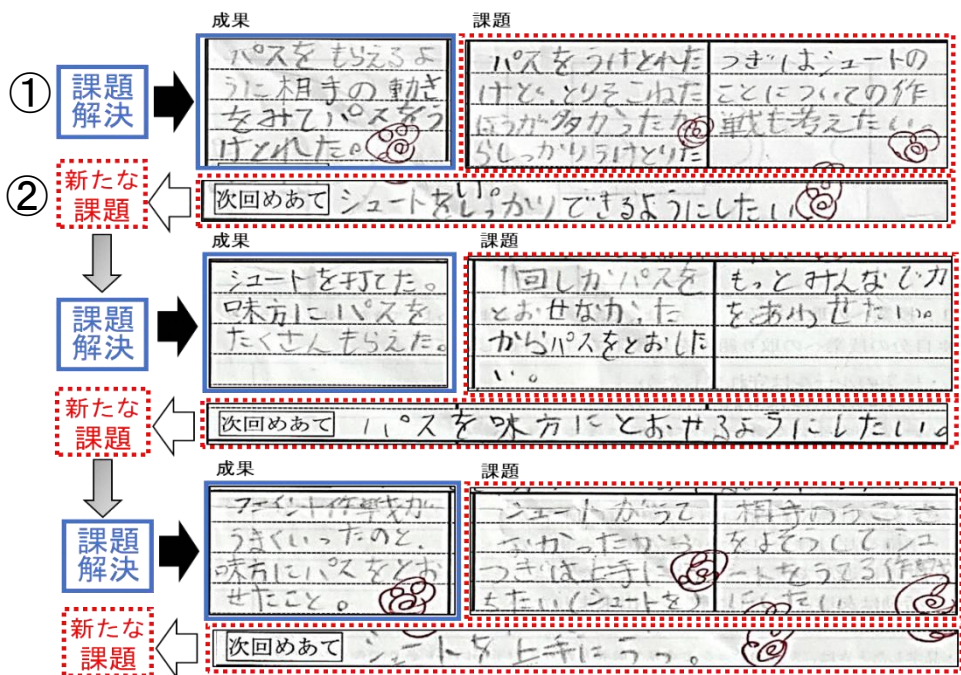 成果
課題
①
課題
解決
パスをもらえるよ
うに相手の動き
をみてパスをう
けとれた。
パスをうけとれた
けど、とりそこねた
ほうが多かったか
らしっかりうけとりた
い。
つぎはシュートの
ことについての作
戦も考えたい。
②
新たな
課題
次回めあて
シュートをしっかりできるようにしたい
成果
課題
課題
解決
シュートを打てた。
味方にパスを
たくさんもらえた。
1回しかパスを
とおせなかった
からパスをとおした
い。
もっとみんなで力
をあわせたい。
新たな
課題
次回めあて
パスを味方にとおせるようにしたい。
成果
課題
課題
解決
ファイント作戦が
うまくいったのと、
味方にパスをとお
せたこと。
シュートがうて
なかったから
つぎは上手に
ちたい(シュートをう
相手のうごき
をよそうしてシュ
ートをうてる作戦
にしたい
新たな
課題
次回めあて
シュートを上手にうつ。